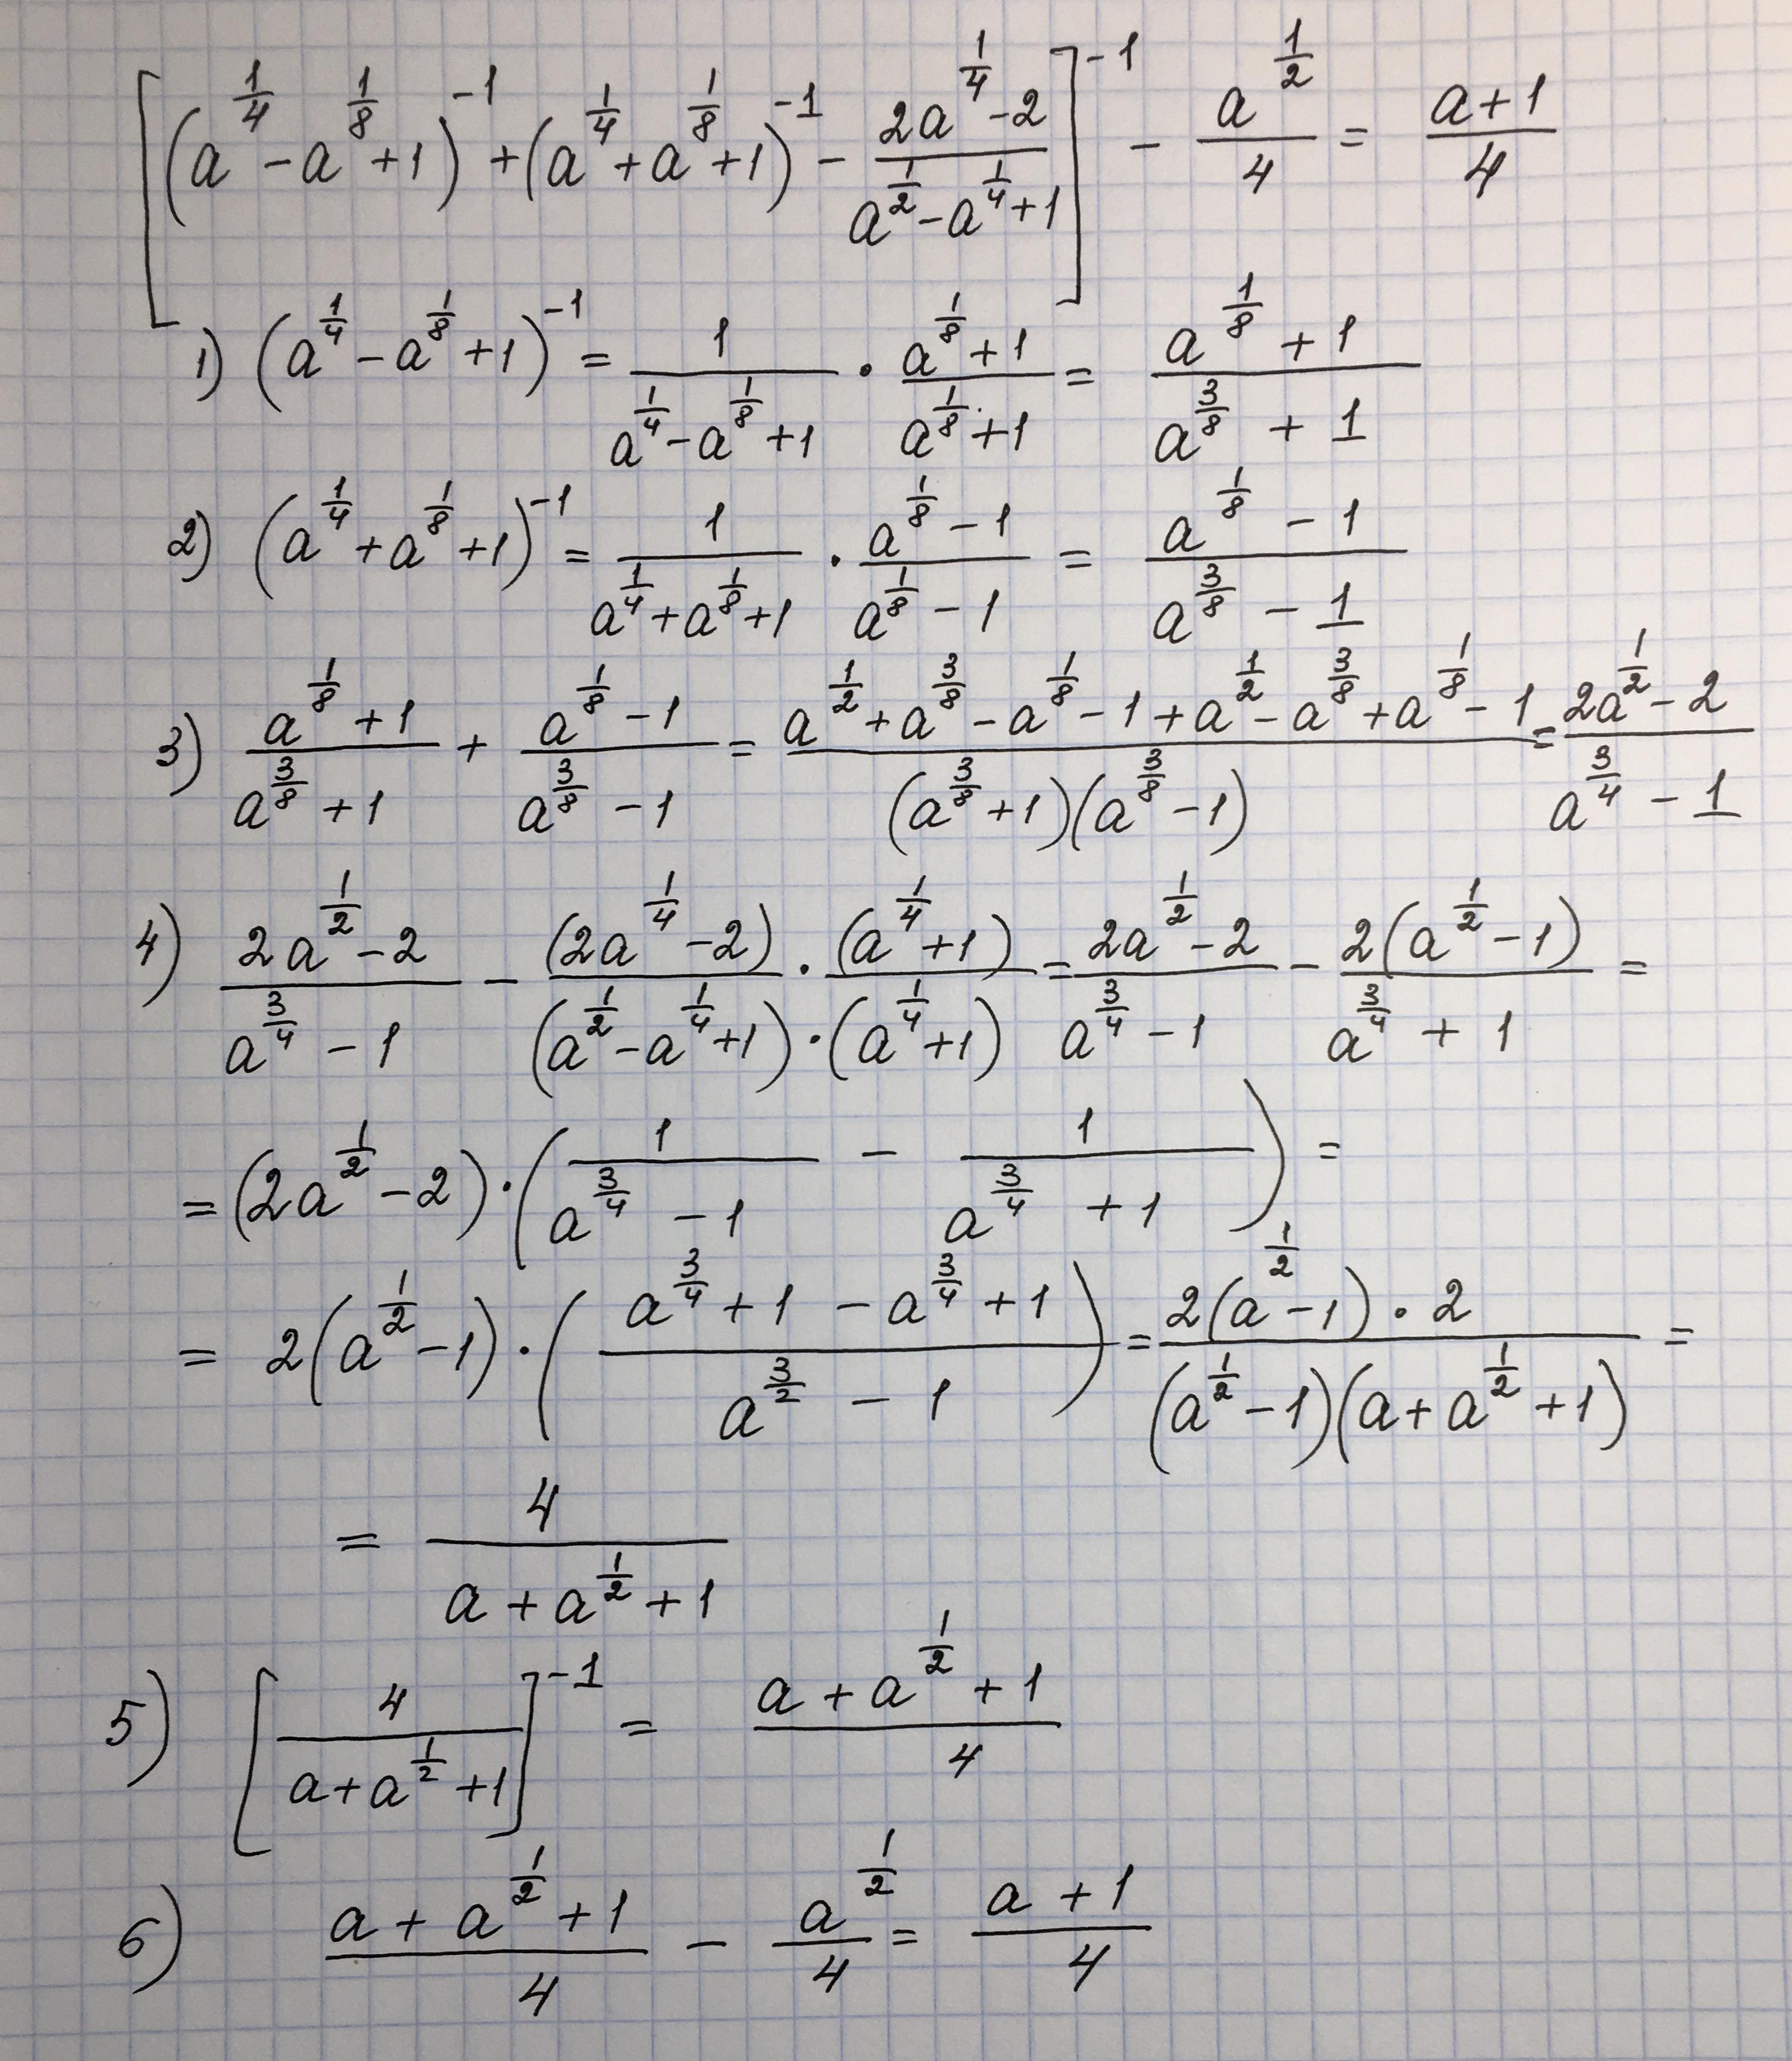 [(a^{1/4} - a^{1/8} + 1)^{-1} + (a^{1/4} + a^{1/8} + 1)^{-1} - \frac{2a^{1/4} - 2}{a^{1/2} - a^{1/4} + 1}]^{-1} - \frac{a^{1/2}}{4} = \frac{a+1}{4}
1) (a^{1/4} - a^{1/8} + 1)^{-1} = \frac{1}{a^{1/4} - a^{1/8} + 1} · \frac{a^{1/8} + 1}{a^{1/8} + 1} = \frac{a^{1/8} + 1}{a^{3/8} + 1}
2) (a^{1/4} + a^{1/8} + 1)^{-1} = \frac{1}{a^{1/4} + a^{1/8} + 1} · \frac{a^{1/8} - 1}{a^{1/8} - 1} = \frac{a^{1/8} - 1}{a^{3/8} - 1}
3) \frac{a^{1/8} + 1}{a^{3/8} + 1} + \frac{a^{1/8} - 1}{a^{3/8} - 1} = \frac{a^{1/2} + a^{3/8} - a^{1/8} - 1 + a^{1/2} - a^{3/8} + a^{1/8} - 1}{(a^{3/8} + 1)(a^{3/8} - 1)} = \frac{2a^{1/2} - 2}{a^{3/4} - 1}
4) \frac{2a^{1/2} - 2}{a^{3/4} - 1} - \frac{(2a^{1/4} - 2)}{(a^{1/2} - a^{1/4} + 1)} · \frac{(a^{1/4} + 1)}{(a^{1/4} + 1)} = \frac{2a^{1/2} - 2}{a^{3/4} - 1} - \frac{2(a^{1/2} - 1)}{a^{3/4} + 1} =
= (2a^{1/2} - 2) · (\frac{1}{a^{3/4} - 1} - \frac{1}{a^{3/4} + 1}) =
= 2(a^{1/2} - 1) · (\frac{a^{3/4} + 1 - a^{3/4} + 1}{a^{3/2} - 1}) = \frac{2(a^{1/2} - 1) · 2}{(a^{1/2} - 1)(a + a^{1/2} + 1)} =
= \frac{4}{a + a^{1/2} + 1}
5) [\frac{4}{a + a^{1/2} + 1}]^{-1} = \frac{a + a^{1/2} + 1}{4}
6) \frac{a + a^{1/2} + 1}{4} - \frac{a^{1/2}}{4} = \frac{a + 1}{4}